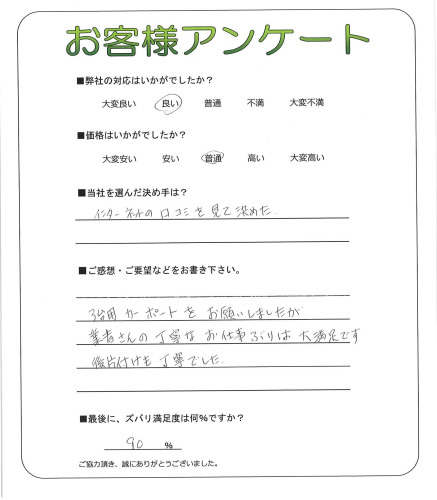 お客様アンケート
■弊社の対応はいかがでしたか?
大変良い 良い 普通 不満 大変不満
■価格はいかがでしたか?
大変安い 安い 普通 高い 大変高い
■当社を選んだ決め手は?
インターネットの口コミを見て決めた.
■ご感想・ご要望などをお書き下さい。
3台用カーポートをお願いしましたが
業者さんの丁寧なお仕事ぶりは大満足です
後片付けも丁寧でした.
■最後に、ズバリ満足度は何%ですか?
90 %
ご協力頂き、誠にありがとうございました。